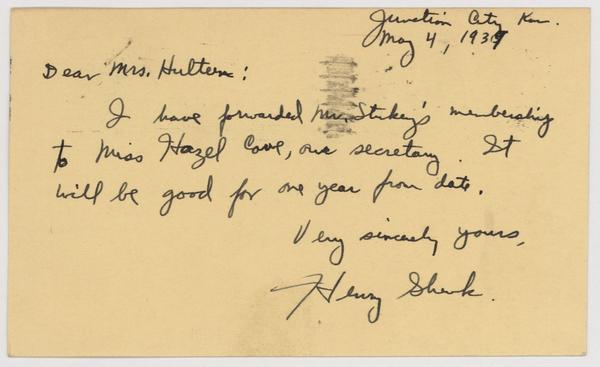 Junction City Kan.
May 4, 1939
Dear Mrs. Hulteen:
I have forwarded Mr. Stukey's membership
to Miss Hazel Cave, our secretary. It
will be good for one year from date.
Very sincerely yours,
Henry Shenk.